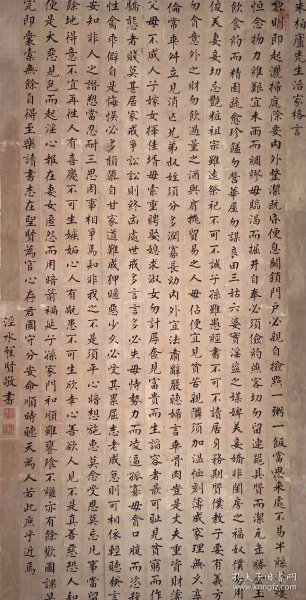 朱柏廬先生治家格言
黎明即起灑掃庭除要內外整潔既昏便息關鎖門戶必親自檢點一粥一飯當思來處不易半絲
恒念物力維艱宜未雨而綢繆毋臨渴而掘井自奉必須儉約宴客切勿留連器具質而潔瓦缶勝金
飲食約而精園蔬愈珍饈勿營華屋勿謀良田三姑六婆實淫盜之媒婢美妾嬌非閨房之福奴僕
俊美妻妾切忌艷粧祖宗雖遠祭祀不可不誠子孫雖愚經書不可不讀居身務期儉樸教子要有義方
勿貪意外之財勿飲過量之酒與肩挑貿易毋佔便宜見貧苦親鄰須加溫恤刻薄成家理無久享
倫常乖舛立見消亡兄弟叔姪須分多潤寡長幼內外宜法肅辭嚴聽婦言乖骨肉豈是丈夫重資財薄
父母不成人子嫁女擇佳壻毋索重聘娶媳求淑女勿計厚奩見富貴而生諂容者最可恥見貧窮而作
驕態者賤莫甚居家戒爭訟訟則終凶處世戒多言言多必失毋恃勢力而凌逼孤寡毋貪口腹而恣殺
性禽乖僻自是悔悞必多頹惰自甘家道難成狎暱惡少久必受其累屈志老成急則可相依輕聽發言
安知非人之譖愬當忍耐三思因事相爭焉知非我之不是須平心暗想施惠莫念受恩莫忘凡事當留
地得意不宜再往人有喜慶不可生嫉妒心人有禍患不可生欣幸心善欲人見不是真善惡恐人知
便是大惡見色而起淫心報在妻女匿怨而用暗箭禍延子孫家門和順雖饔飧不繼亦有餘歡國課早
完即囊橐無餘自得至樂讀書志在聖賢為官心存君國守分安命順時聽天為人若此庶乎近焉
敬書